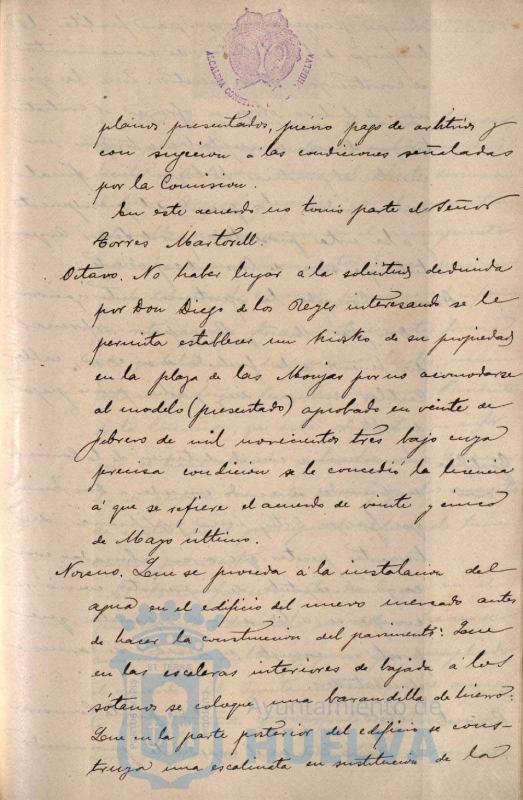 ALCALDIA CONSTITUCIONAL HUELVA
planos presentados, previo pago de arbitrios y
con sujecion á las condiciones señaladas
por la Comision.
En este acuerdo no tomó parte el Señor
Torres Martorell.
Octavo. No haber lugar á la solicitud deducida
por Don Diego de los Reyes interesando se le
permita establecer un kiosko de su propiedad
en la plaza de las Monjas por no acomodarse
al modelo (presentado) aprobado en veinte de
Febrero de mil novecientos tres bajo cuya
precisa condicion se le concedió la licencia
á que se refiere el acuerdo de veinte y cinco
de Mayo último.
Noveno. Que se proceda á la instalacion del
agua en el edificio del nuevo mercado antes
de hacer la construccion del pavimento: Que
en las escaleras interiores de bajada á los
sótanos se coloque una barandilla de hierro:
Que en la parte posterior del edificio se cons-
truya una escalinata en sustitucion de la
Ayuntamiento de
HUELVA